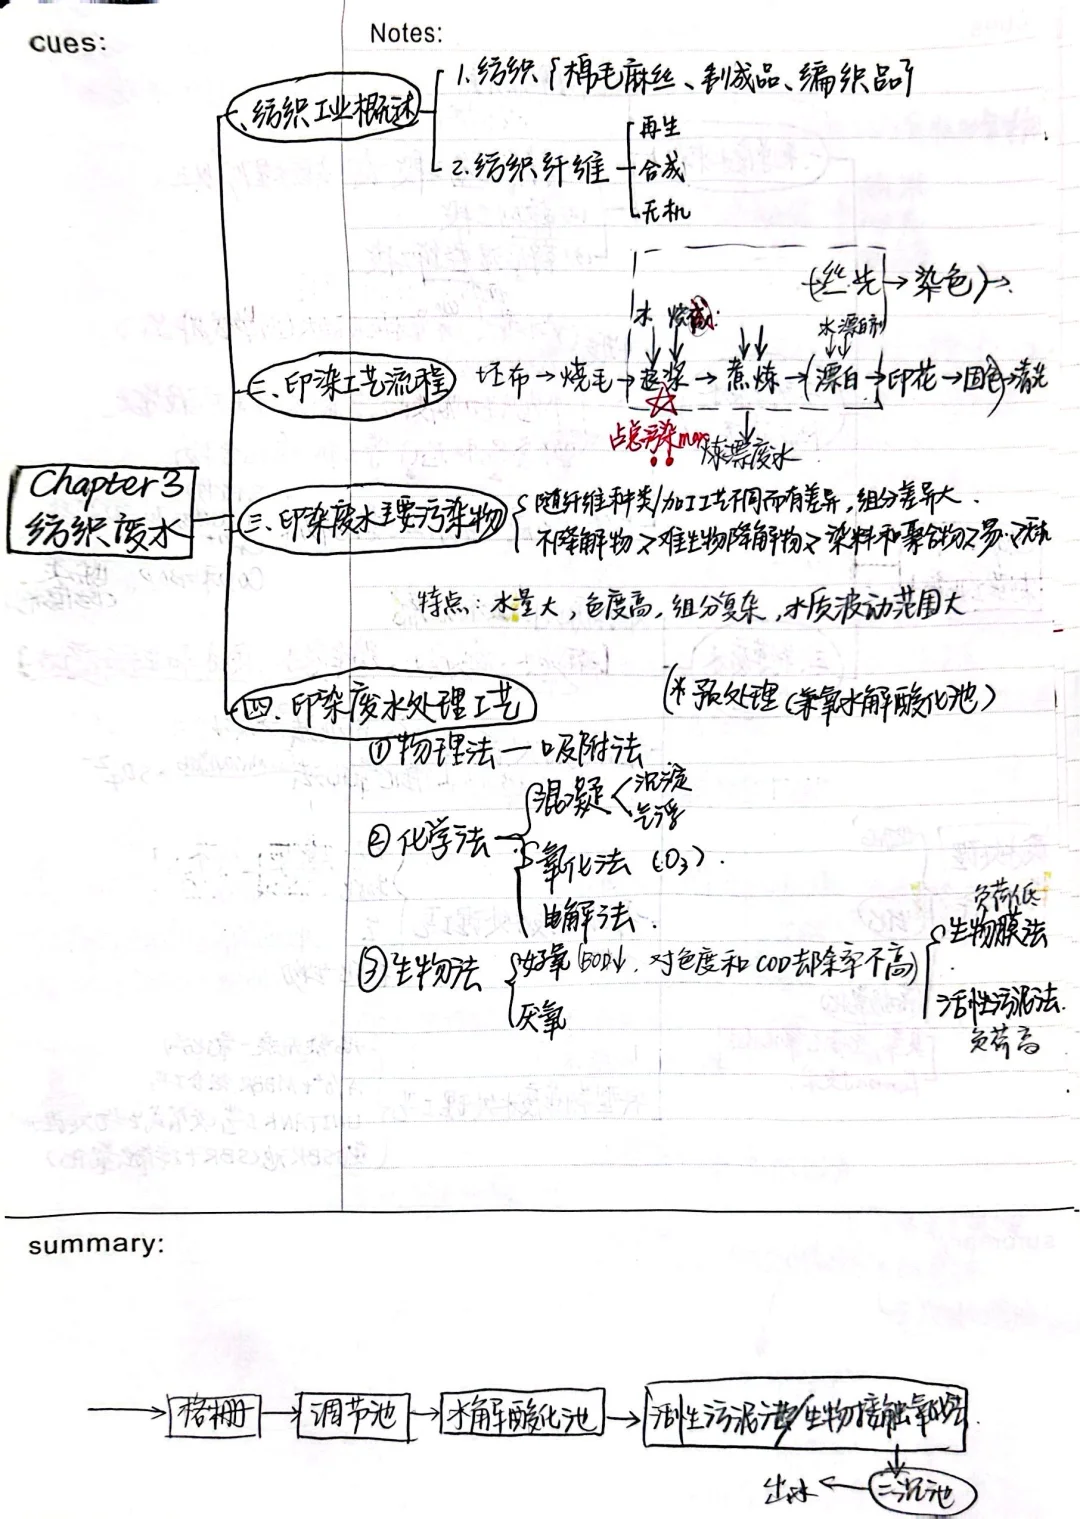 cues:
Notes:
一、纺织工业概述
1.纺织{棉毛麻丝、制成品、编织品}
2.纺织纤维
再生
合成
无机
(丝光→染色)→
水 烧碱
水 漂白剂
二、印染工艺流程
坯布→烧毛→退浆→煮炼→(漂白→印花→固色→清洗
占总污染max
!!
炼漂废水
Chapter3
纺织废水
三、印染废水主要污染物
随纤维种类/加工工艺不同而有差异,组分差异大.
不降解物>难生物降解物>染料和聚合物>易…>无机
特点:水量大,色度高,组分复杂,水质波动范围大
四、印染废水处理工艺
(*预处理(兼氧水解酸化池)
①物理法—吸附法
②化学法
混凝
沉淀
气浮
氧化法(O₃).
电解法.
③生物法
好氧(BOD↓,对色度和COD去除率不高)
厌氧
负荷低
生物膜法
活性污泥法.
负荷高
summary:
→格栅→调节池→水解酸化池→活性污泥法/生物接触氧化法.
出水←二沉池